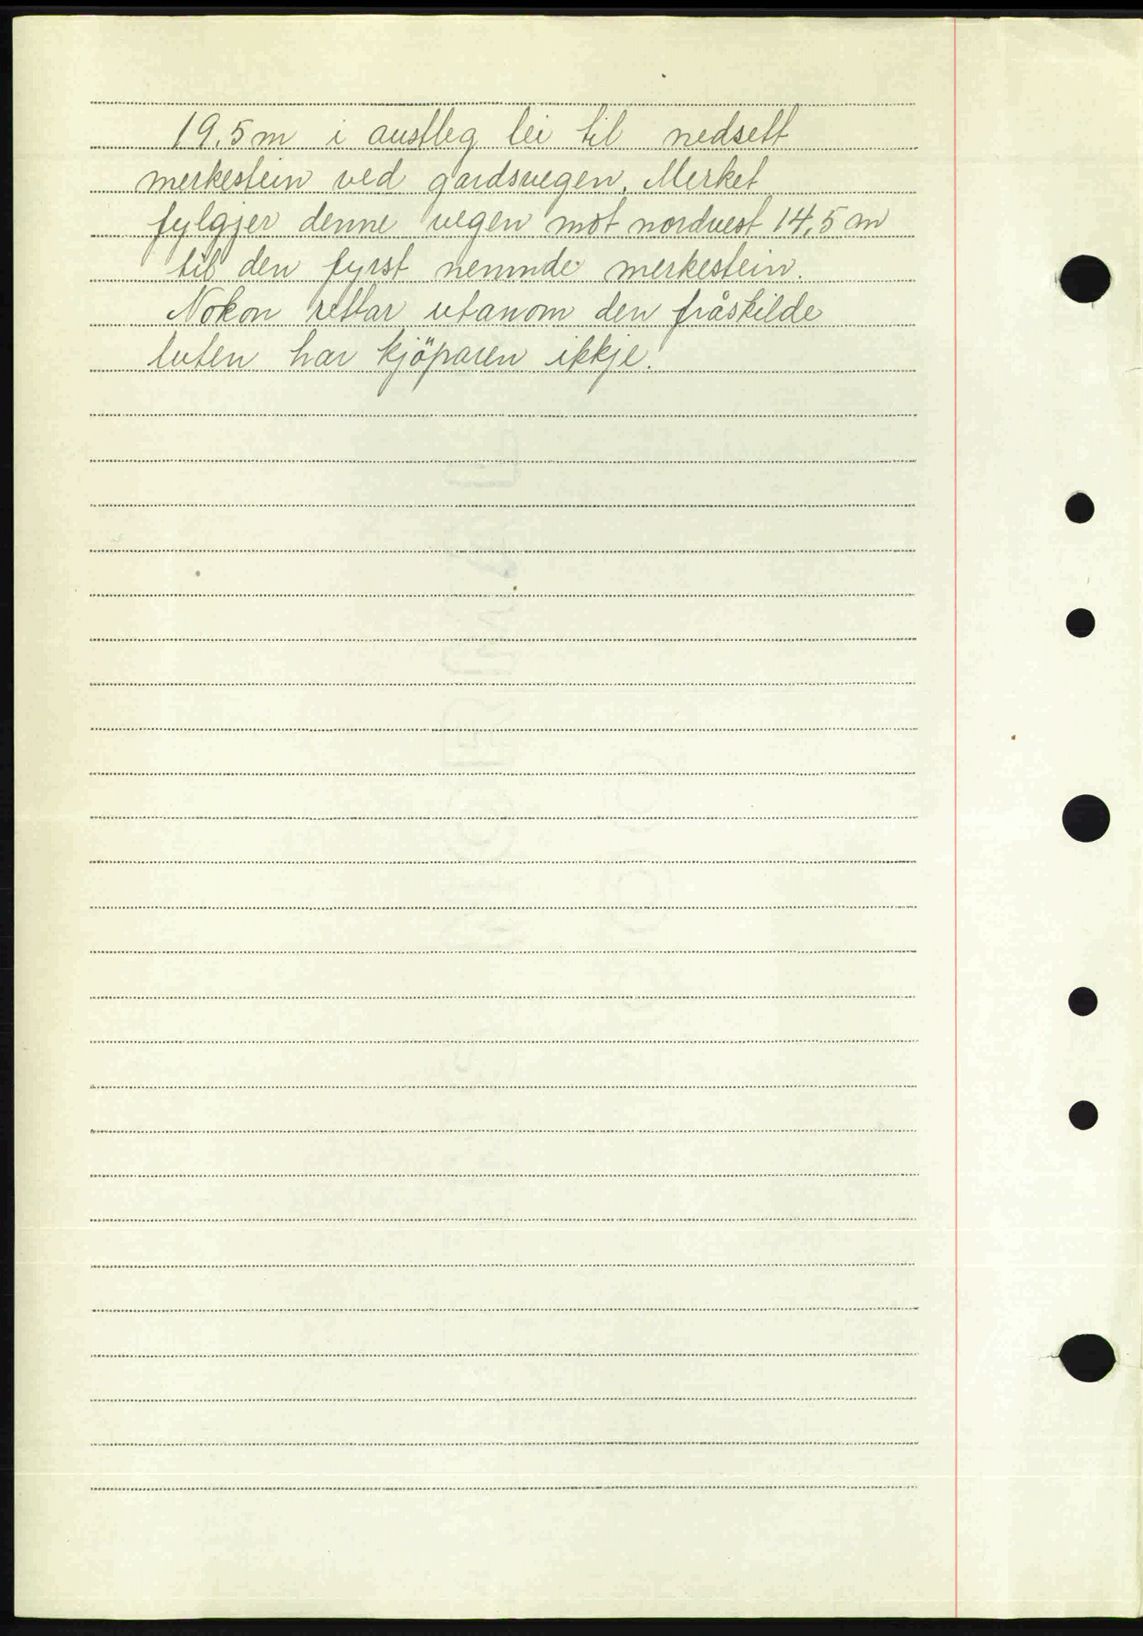 19.5 m i austleg lei til nedsett
merkestein ved gardsvegen. Merket
fylgjer denne vegen mot nordvest 14,5 m
til den fyrst nemnde merkestein.
Nokon rettar utanom den fråskilde
luten har kjöparen ikkje.